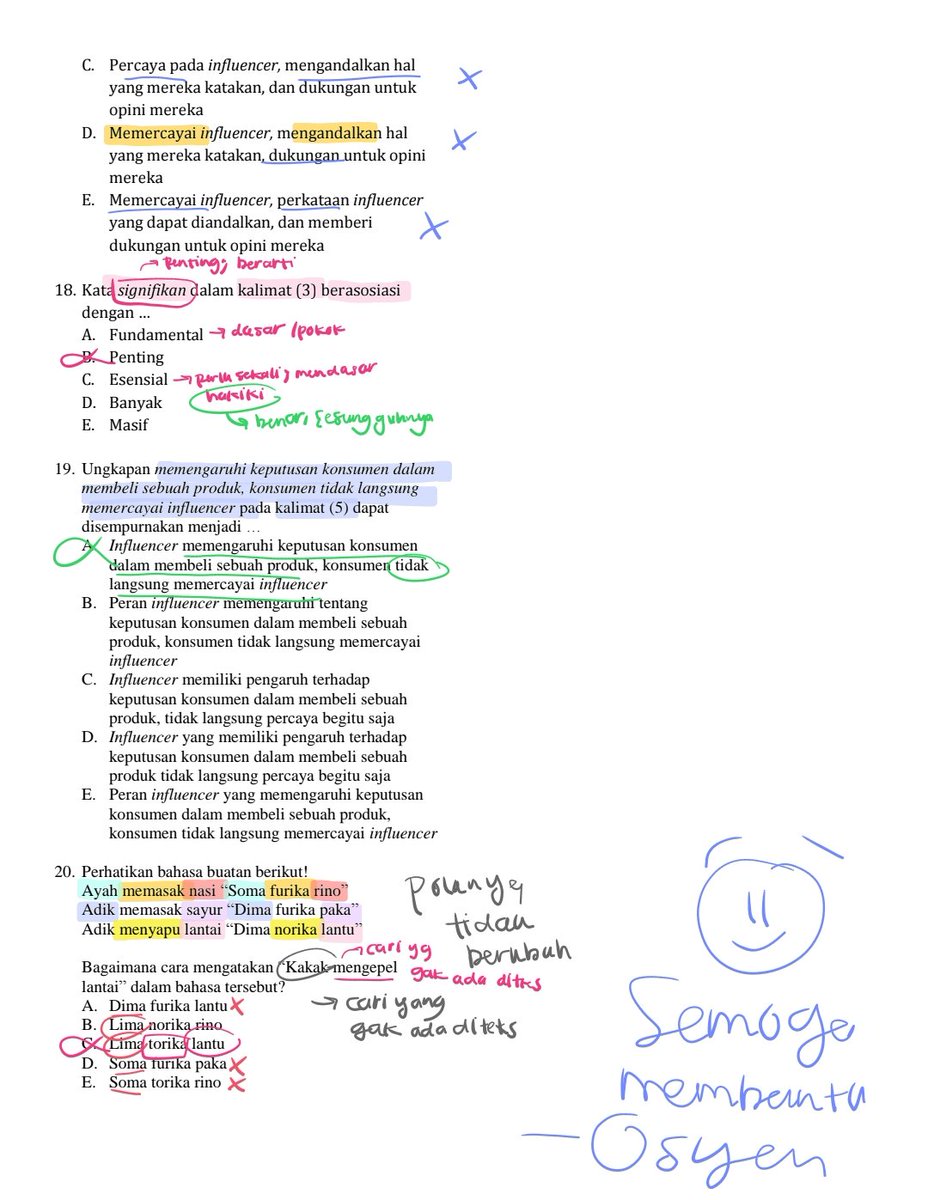 C. Percaya pada influencer, mengandalkan hal
yang mereka katakan, dan dukungan untuk
opini mereka
D. Memercayai influencer, mengandalkan hal
yang mereka katakan, dukungan untuk opini
mereka
E. Memercayai influencer, perkataan influencer
yang dapat diandalkan, dan memberi
dukungan untuk opini mereka
→ Penting; berarti
18. Kata signifikan dalam kalimat (3) berasosiasi
dengan ...
A. Fundamental → dasar / pokok
B. Penting
C. Esensial → perlu sekali; mendasar
hakiki
D. Banyak
↳ benar, sesungguhnya
E. Masif
19. Ungkapan memengaruhi keputusan konsumen dalam
membeli sebuah produk, konsumen tidak langsung
memercayai influencer pada kalimat (5) dapat
disempurnakan menjadi …
A. Influencer memengaruhi keputusan konsumen
dalam membeli sebuah produk, konsumen tidak
langsung memercayai influencer
B. Peran influencer memengaruhi tentang
keputusan konsumen dalam membeli sebuah
produk, konsumen tidak langsung memercayai
influencer
C. Influencer memiliki pengaruh terhadap
keputusan konsumen dalam membeli sebuah
produk, tidak langsung percaya begitu saja
D. Influencer yang memiliki pengaruh terhadap
keputusan konsumen dalam membeli sebuah
produk tidak langsung percaya begitu saja
E. Peran influencer yang memengaruhi keputusan
konsumen dalam membeli sebuah produk,
konsumen tidak langsung memercayai influencer
20. Perhatikan bahasa buatan berikut!
Ayah memasak nasi “Soma furika rino”
Adik memasak sayur “Dima furika paka”
Adik menyapu lantai “Dima norika lantu”
Polanya
tidak
berubah
Bagaimana cara mengatakan “Kakak mengepel
lantai” dalam bahasa tersebut?
→ cari yg
gak ada di tks
→ cari yang
gak ada di teks
A. Dima furika lantu
B. Lima norika rino
C. Lima torika lantu
D. Soma furika paka
E. Soma torika rino
Semoga
membantu
— Osyen